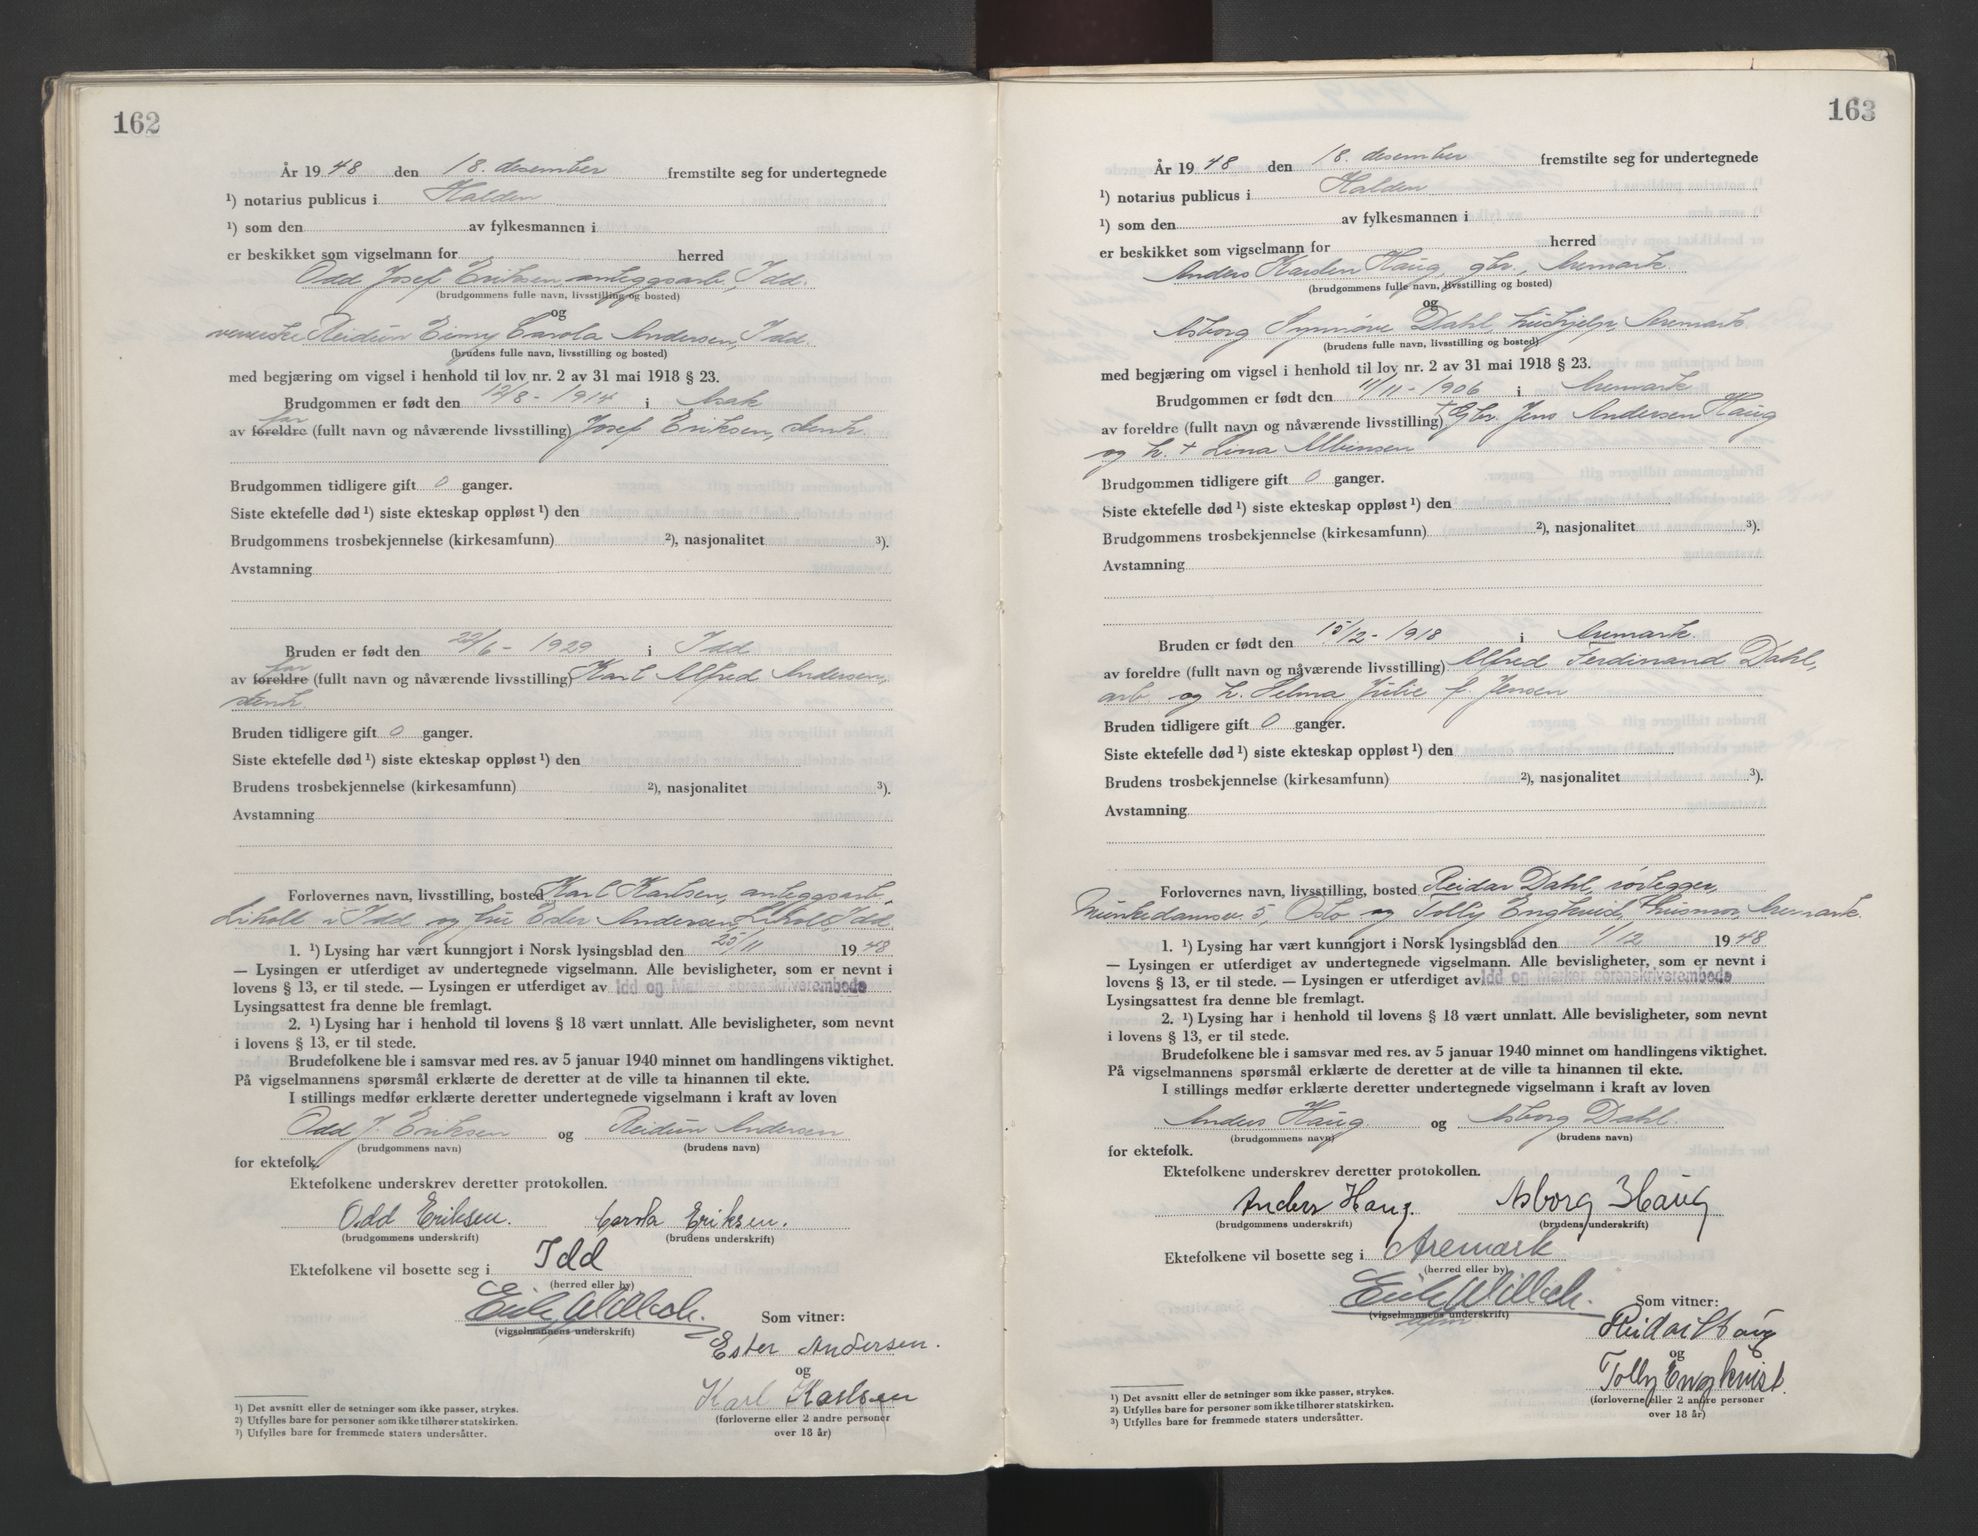 162
År 1948 den 18. desember fremstilte seg for undertegnede
¹) notarius publicus i Halden
¹) som den av fylkesmannen i
er beskikket som vigselmann for herred
Odd Josef Eriksen, anleggsarb., Idd.
(brudgommens fulle navn, livsstilling og bosted)
og
Reidun Einny Carola Andersen, Idd.
(brudens fulle navn, livsstilling og bosted)
med begjæring om vigsel i henhold til lov nr. 2 av 31 mai 1918 § 23.
Brudgommen er født den 12/8 - 1914 i Asak
far
av foreldre (fullt navn og nåværende livsstilling) Josef Eriksen, stenh.
Brudgommen tidligere gift 0 ganger.
Siste ektefelle død ¹) siste ekteskap oppløst ¹) den
Brudgommens trosbekjennelse (kirkesamfunn) ²), nasjonalitet ³).
Avstamning
Bruden er født den 22/6 - 1929 i Idd
far
av foreldre (fullt navn og nåværende livsstilling) Karl Alfred Andersen,
stenh.
Bruden tidligere gift 0 ganger.
Siste ektefelle død ¹) siste ekteskap oppløst ¹) den
Brudens trosbekjennelse (kirkesamfunn) ²), nasjonalitet ³).
Avstamning
Forlovernes navn, livsstilling, bosted Karl Karlsen, anleggsarb.,
Liholt i Idd og fru Ester Andersen, Liholt, Idd
1. ¹) Lysing har vært kunngjort i Norsk lysingsblad den 25/11 1948
— Lysingen er utferdiget av undertegnede vigselmann. Alle bevisligheter, som er nevnt i
lovens § 13, er til stede. — Lysingen er utferdiget av Idd og Marker sorenskriverembede
Lysingsattest fra denne ble fremlagt.
2. ¹) Lysing har i henhold til lovens § 18 vært unnlatt. Alle bevisligheter, som nevnt
i lovens § 13, er til stede.
Brudefolkene ble i samsvar med res. av 5 januar 1940 minnet om handlingens viktighet.
På vigselmannens spørsmål erklærte de deretter at de ville ta hinannen til ekte.
I stillings medfør erklærte deretter undertegnede vigselmann i kraft av loven
Odd J. Eriksen og Reidun Andersen
(brudgommens navn) (brudens navn)
for ektefolk.
Ektefolkene underskrev deretter protokollen.
Odd Eriksen. Carola Eriksen.
(brudgommens underskrift) (brudens underskrift)
Ektefolkene vil bosette seg i Idd
(herred eller by)
Erik Willoch. Som vitner:
(vigselmannens underskrift)
Ester Andersen.
og
Karl Karlsen
(forloverne eller 2 andre personer
over 18 år)
¹) Det avsnitt eller de setninger som ikke passer, strykes.
²) Utfylles bare for personer som ikke tilhører statskirken.
³) Utfylles bare for fremmede staters undersåtter.
163
År 1948 den 18. desember fremstilte seg for undertegnede
¹) notarius publicus i Halden
¹) som den av fylkesmannen i
er beskikket som vigselmann for herred
Anders Karsten Haug, gbr., Aremark.
(brudgommens fulle navn, livsstilling og bosted)
og
Asborg Synnøve Dahl, hushjelp, Aremark.
(brudens fulle navn, livsstilling og bosted)
med begjæring om vigsel i henhold til lov nr. 2 av 31 mai 1918 § 23.
Brudgommen er født den 11/11 - 1906 i Aremark
av foreldre (fullt navn og nåværende livsstilling) † Gbr. Jens Andersen Haug
og h. † Lina Albinsen
Brudgommen tidligere gift 0 ganger.
Siste ektefelle død ¹) siste ekteskap oppløst ¹) den
Brudgommens trosbekjennelse (kirkesamfunn) ²), nasjonalitet ³).
Avstamning
Bruden er født den 15/12 - 1918 i Aremark.
av foreldre (fullt navn og nåværende livsstilling) Alfred Ferdinand Dahl,
arb. og h. Selma Julie f. Jensen
Bruden tidligere gift 0 ganger.
Siste ektefelle død ¹) siste ekteskap oppløst ¹) den
Brudens trosbekjennelse (kirkesamfunn) ²), nasjonalitet ³).
Avstamning
Forlovernes navn, livsstilling, bosted Reidar Dahl, rørlegger,
Munkedamsv. 5, Oslo og Tolly Engkvist, husmor, Aremark.
1. ¹) Lysing har vært kunngjort i Norsk lysingsblad den 1/12 1948
— Lysingen er utferdiget av undertegnede vigselmann. Alle bevisligheter, som er nevnt i
lovens § 13, er til stede. — Lysingen er utferdiget av Idd og Marker sorenskriverembede
Lysingsattest fra denne ble fremlagt.
2. ¹) Lysing har i henhold til lovens § 18 vært unnlatt. Alle bevisligheter, som nevnt
i lovens § 13, er til stede.
Brudefolkene ble i samsvar med res. av 5 januar 1940 minnet om handlingens viktighet.
På vigselmannens spørsmål erklærte de deretter at de ville ta hinannen til ekte.
I stillings medfør erklærte deretter undertegnede vigselmann i kraft av loven
Anders Haug og Asborg Dahl.
(brudgommens navn) (brudens navn)
for ektefolk.
Ektefolkene underskrev deretter protokollen.
Anders Haug. Asborg Haug
(brudgommens underskrift) (brudens underskrift)
Ektefolkene vil bosette seg i Aremark
(herred eller by)
Erik Willoch. Som vitner:
(vigselmannens underskrift)
Reidar Haug
og
Tolly Engkvist.
(forloverne eller 2 andre personer
over 18 år)
¹) Det avsnitt eller de setninger som ikke passer, strykes.
²) Utfylles bare for personer som ikke tilhører statskirken.
³) Utfylles bare for fremmede staters undersåtter.